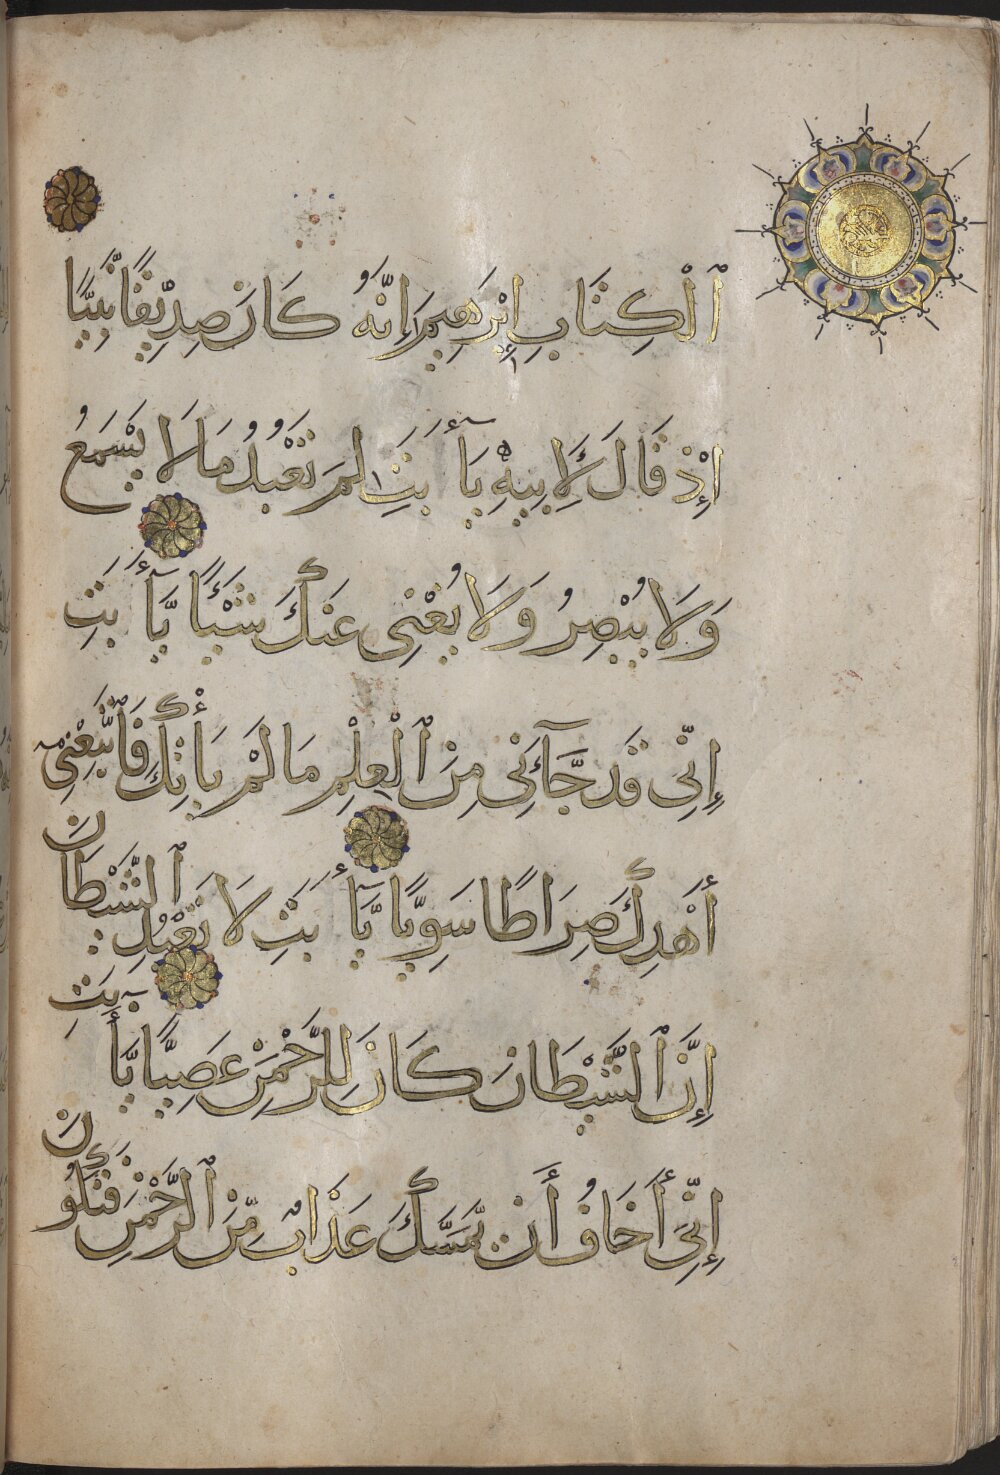 ٱلْكِتَابِ إِبْرَهِيمَ إِنَّهُ كَانَ صِدِّيقًا نَّبِيًّا
إِذْ قَالَ لِأَبِيهِ يَآأَبَتِ لِمَ تَعْبُدُ مَا لَا يَسْمَعُ
وَلَا يُبْصِرُ وَلَا يُغْنِى عَنكَ شَيْـًٔا يَّآأَبَتِ
إِنِّى قَدْ جَآءَنِى مِنَ ٱلْعِلْمِ مَا لَمْ يَأْتِكَ فَٱتَّبِعْنِىٓ
أَهْدِكَ صِرَاطًا سَوِيًّا يَّآأَبَتِ لَا تَعْبُدِ ٱلشَّيْطَانَ
إِنَّ ٱلشَّيْطَانَ كَانَ لِلرَّحْمَنِ عَصِيًّا يَّآأَبَتِ
إِنِّىٓ أَخَافُ أَن يَمَسَّكَ عَذَابٌ مِّنَ ٱلرَّحْمَنِ فَتَكُونَ